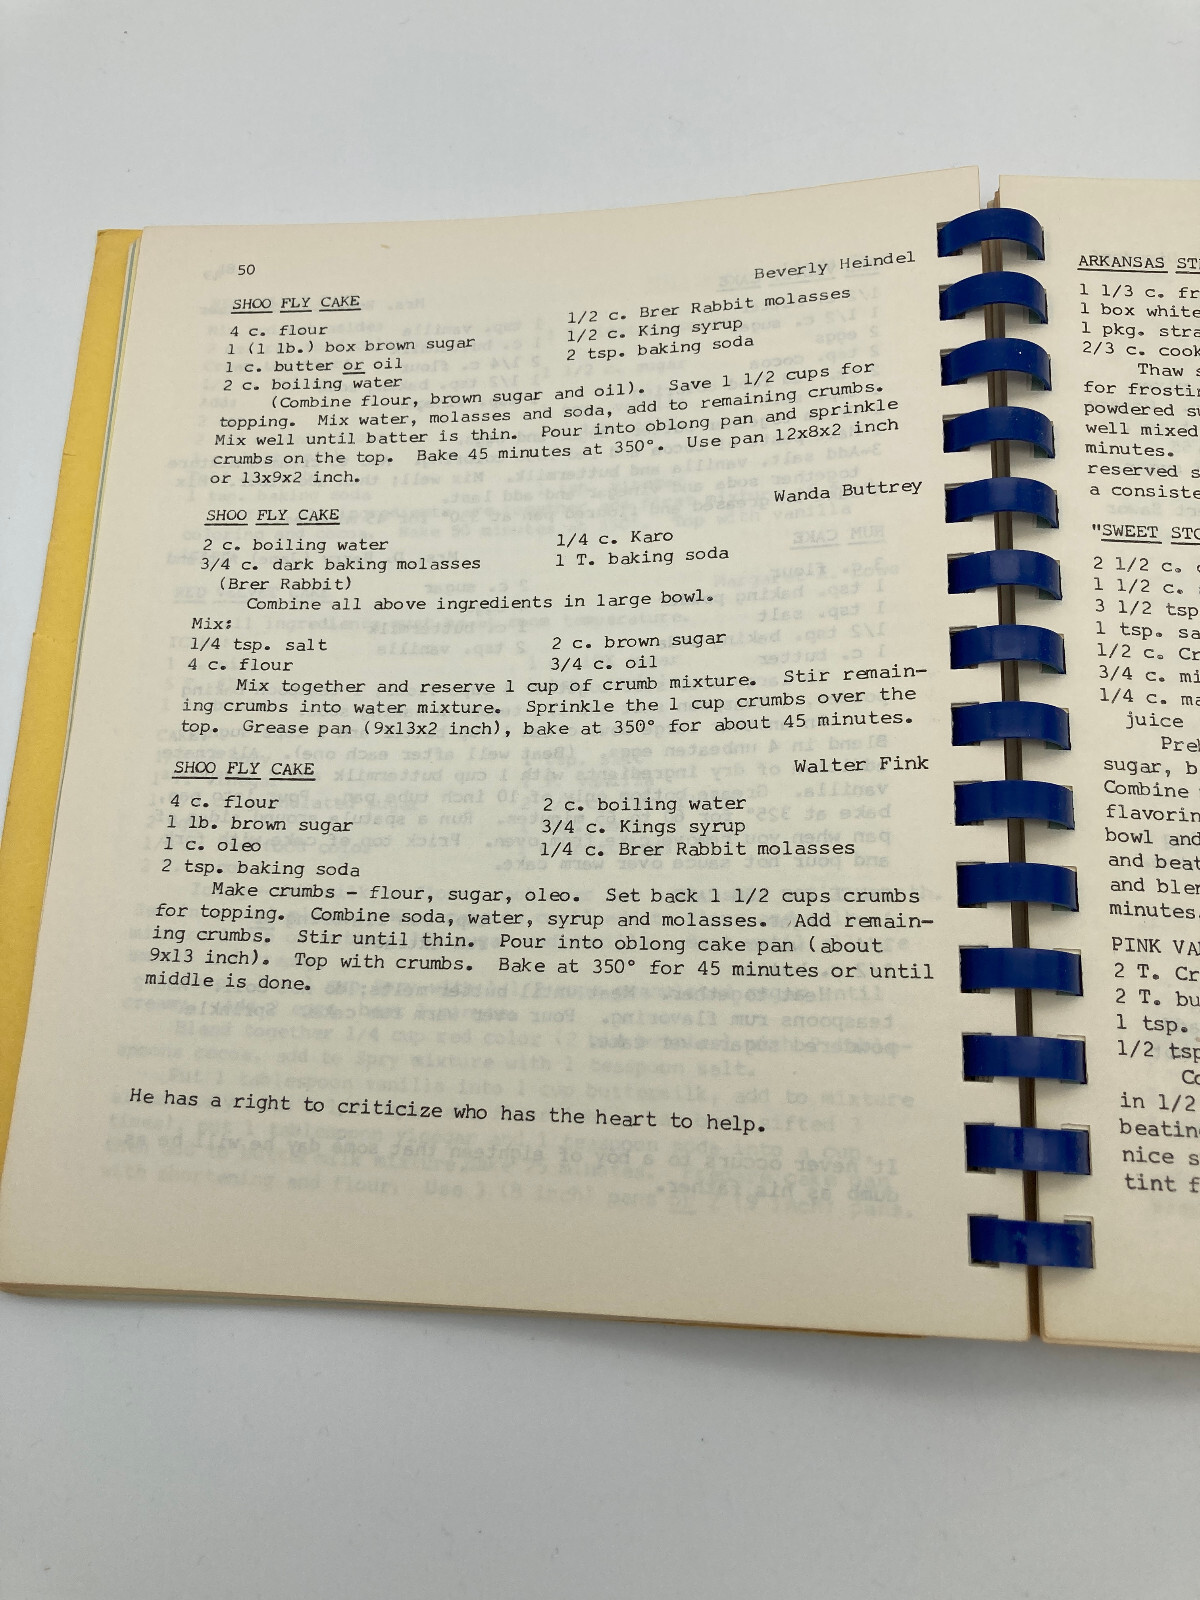 50
Beverly Heindel
SHOO FLY CAKE
4 c. flour
1 (1 lb.) box brown sugar
1 c. butter or oil
2 c. boiling water
1/2 c. Brer Rabbit molasses
1/2 c. King syrup
2 tsp. baking soda
(Combine flour, brown sugar and oil). Save 1 1/2 cups for
topping. Mix water, molasses and soda, add to remaining crumbs.
Mix well until batter is thin. Pour into oblong pan and sprinkle
crumbs on the top. Bake 45 minutes at 350°. Use pan 12x8x2 inch
or 13x9x2 inch.
Wanda Buttrey
SHOO FLY CAKE
2 c. boiling water
3/4 c. dark baking molasses
(Brer Rabbit)
1/4 c. Karo
1 T. baking soda
Combine all above ingredients in large bowl.
Mix:
1/4 tsp. salt
4 c. flour
2 c. brown sugar
3/4 c. oil
Mix together and reserve 1 cup of crumb mixture. Stir remain-
ing crumbs into water mixture. Sprinkle the 1 cup crumbs over the
top. Grease pan (9x13x2 inch), bake at 350° for about 45 minutes.
SHOO FLY CAKE
Walter Fink
4 c. flour
1 lb. brown sugar
1 c. oleo
2 tsp. baking soda
2 c. boiling water
3/4 c. Kings syrup
1/4 c. Brer Rabbit molasses
Make crumbs - flour, sugar, oleo. Set back 1 1/2 cups crumbs
for topping. Combine soda, water, syrup and molasses. Add remain-
ing crumbs. Stir until thin. Pour into oblong cake pan (about
9x13 inch). Top with crumbs. Bake at 350° for 45 minutes or until
middle is done.
He has a right to criticize who has the heart to help.
ARKANSAS
1 1/3 c.
1 box white
1 pkg.
2/3 c.
Thaw
for
powdered
well mixed
minutes.
reserved
a
"SWEET
2 1/2 c.
1 1/2 c.
3 1/2 tsp
1 tsp.
1/2 c.
3/4 c.
1/4 c.
juice
sugar,
Combine
bowl and
and
and
minutes.
PINK
2 T.
2 T.
1 tsp.
1/2 tsp
in 1/2
nice
tint